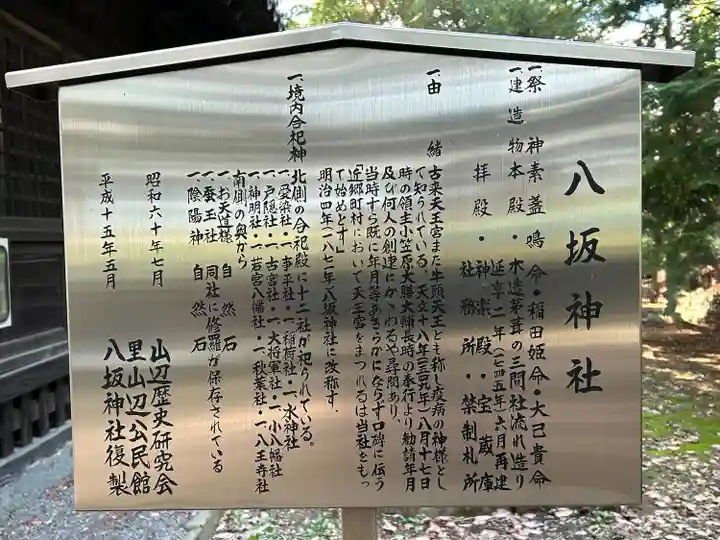 八坂神社
一、祭神 素盞嗚命・稲田姫命・大己貴命
一、建造物 本殿・木造茅葺の三間社流れ造り
延享二年(一七四五年)六月再建
拝殿・神楽殿・宝蔵庫
社務所・禁制札所
一、由緒 古来天王宮また牛頭天王とも称し疫病の神様とし
て知られている。天文十八年(一五四九年)八月十七日
時の領主小笠原大膳大輔長時の奉行より勧請年月
及び何人の創建にかゝわるや尋問あり、
当時すら既に年月等あきらかにならず口碑に伝う
「近郷町村において天王宮をまつれるは当社をもっ
て始めとす」
明治四年(一八七一年)八坂神社に改称す、
一、境内合祀神 北側の合祀殿に十二社が祀られている。
一、愛染社・一、事平社・一、稲荷社・一、水神社
一、戸隠社・一、古宮社・一、大将軍社・一、小八幡社
一、神明社・一、若宮八幡社・一、秋葉社・一、八王寺社
南側の奥から
一、お天王様 自然石
一、蚕玉社 同社に修羅が保存されている
一、陰陽神 自然石
昭和六十年七月
平成十五年五月
山辺歴史研究会
里山辺公民館
八坂神社復製